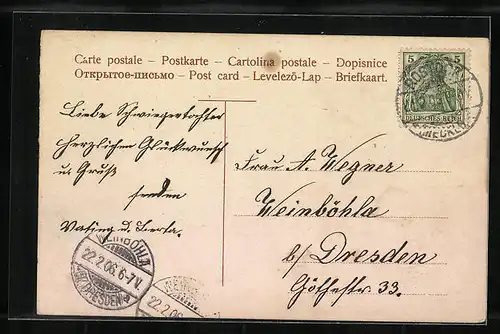 Carte postale – Postkarte – Cartolina postale – Dopisnice
Открытое-письмо – Post card – Levelező-Lap – Briefkaart.
5 5
DEUTSCHES REICH
Liebe Schwiegertochter
herzlichen Glückwunsch
u. Gruß
senden
u. Berta.
Frau A. Wegner
Weinböhla
b/ Dresden
Göthestr. 33.
WEINBÖHLA
22.2.06. 6-7V.
(BZ. DRESDEN)
WEINB
22.2.06